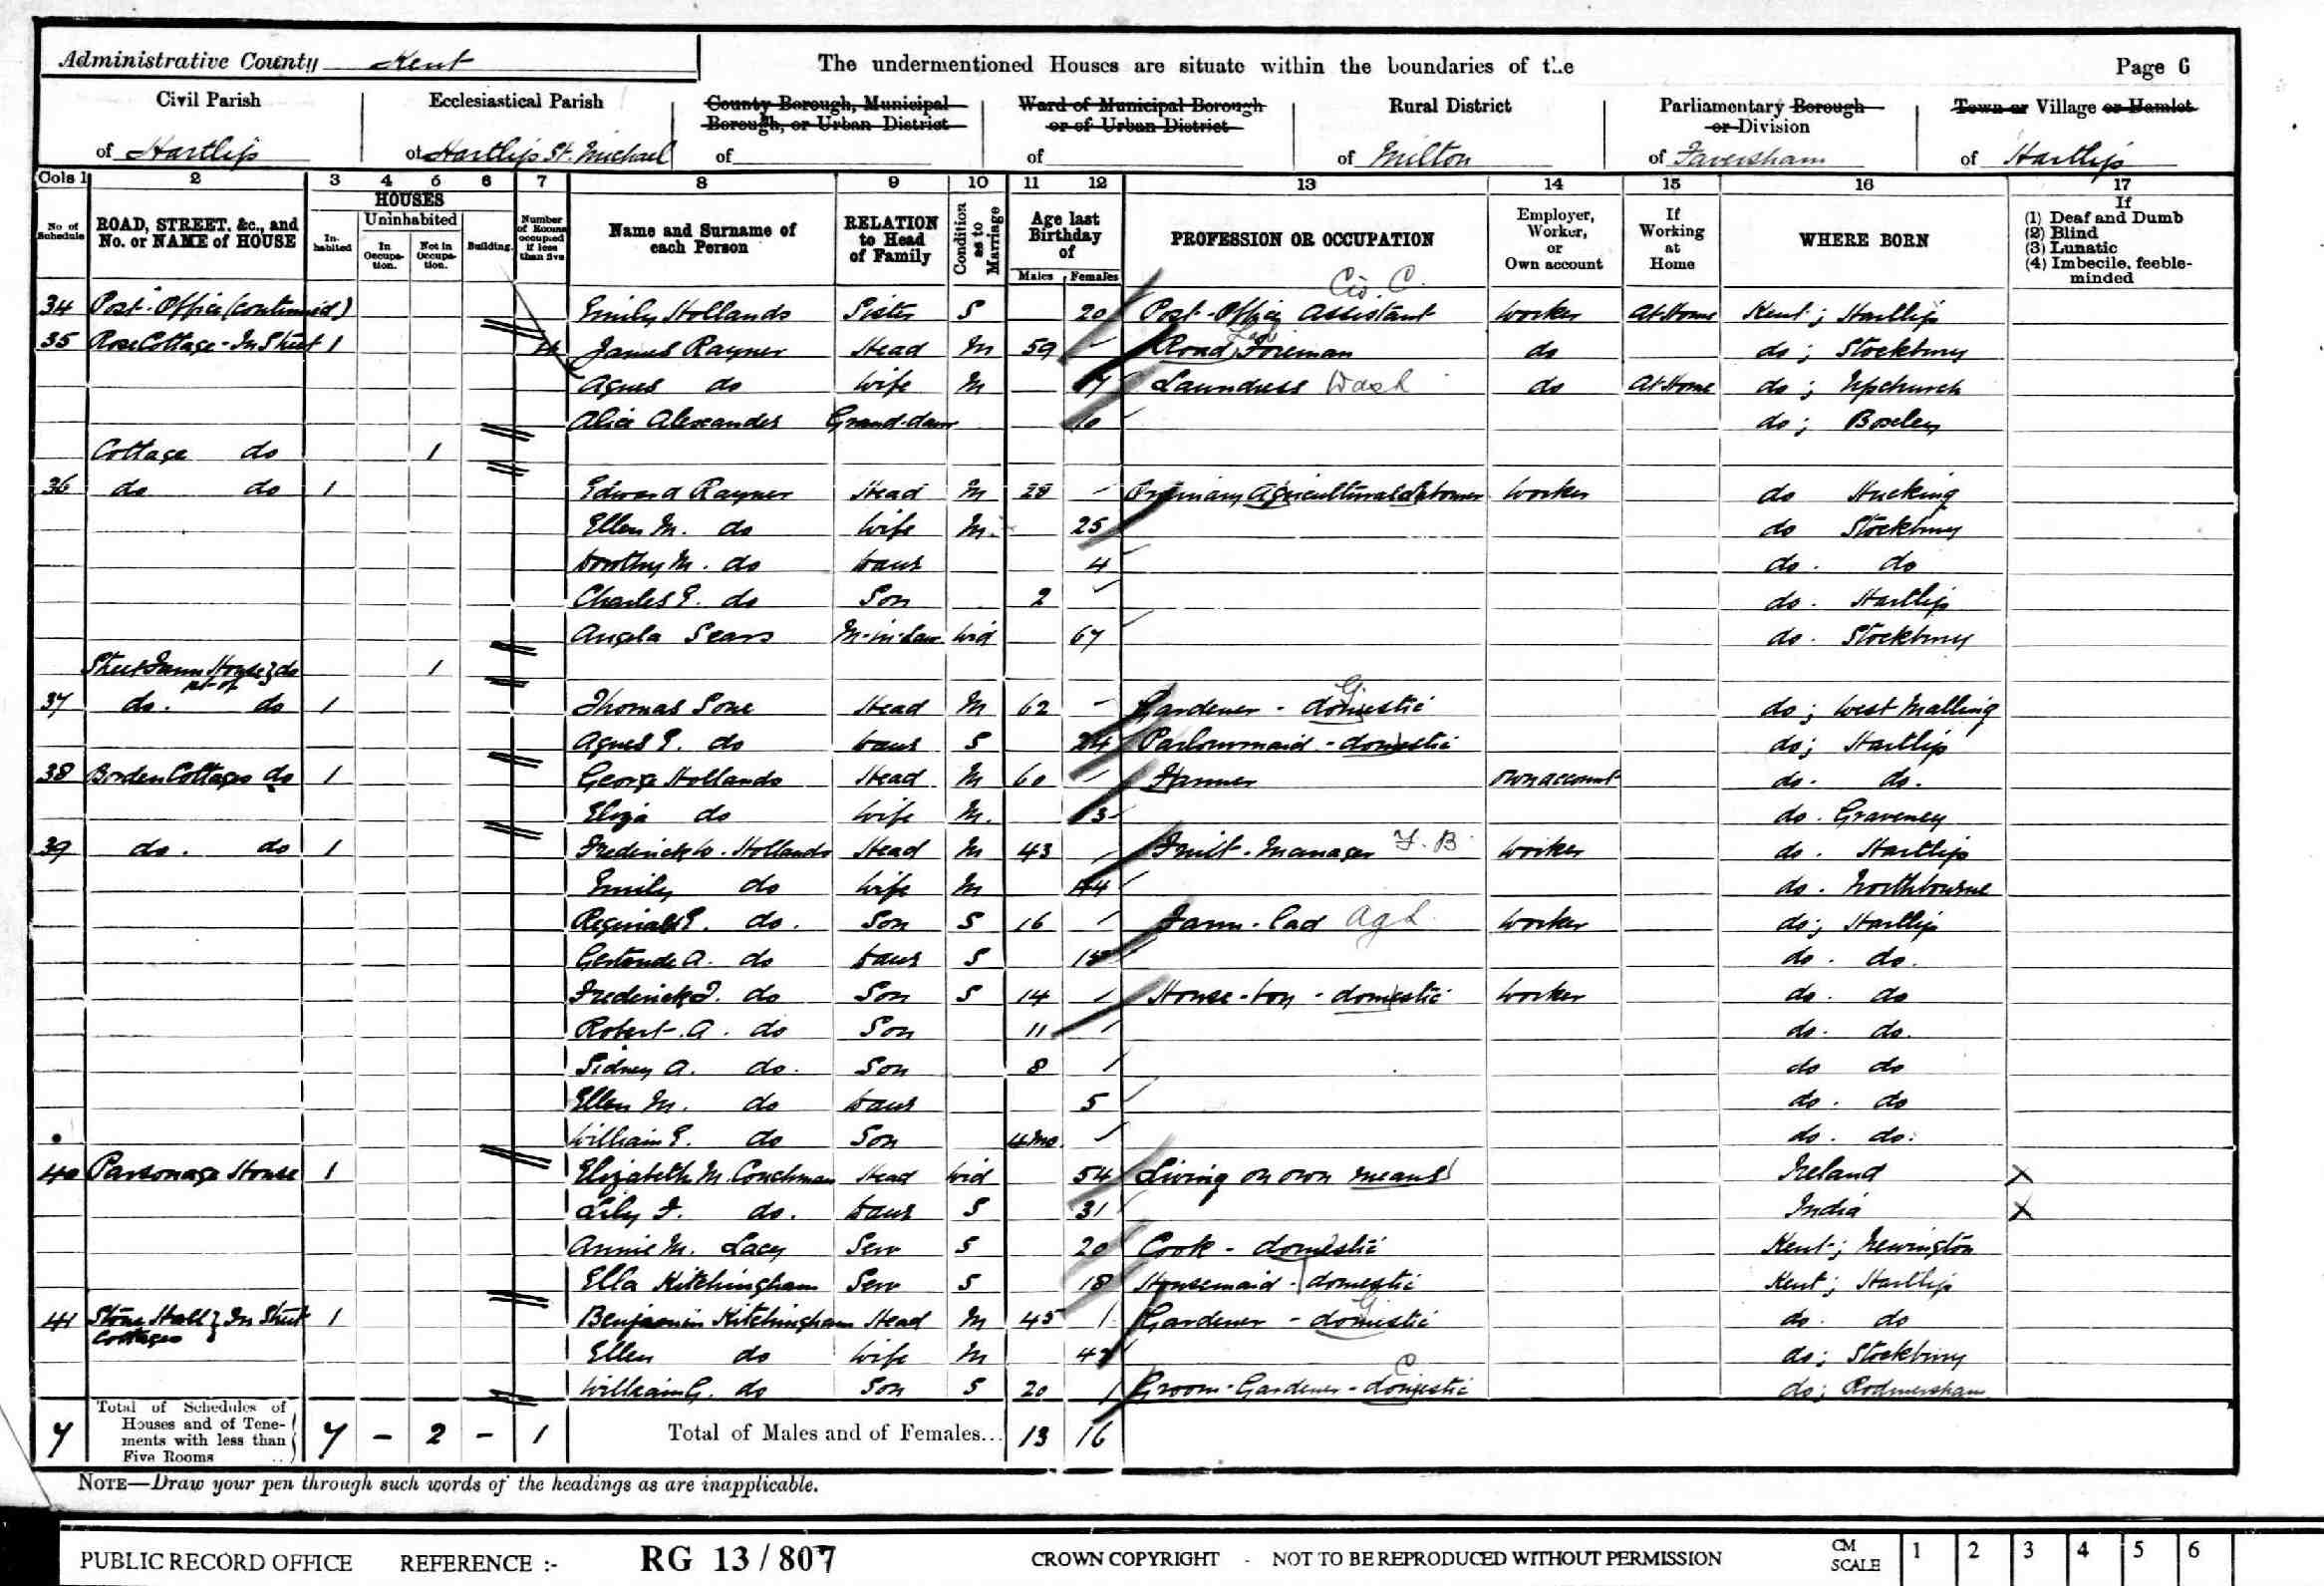 Administrative County Kent
The undermentioned Houses are situate within the boundaries of the
Page 6
Civil Parish of Hartlip
Ecclesiastical Parish of Hartlip St. Michael
County Borough, Municipal Borough, or Urban District of
Ward of Municipal Borough or of Urban District of
Rural District of Milton
Parliamentary Borough or Division of Faversham
Town or Village or Hamlet of Hartlip
Cols 1 2 3 4 5 6 7 8 9 10 11 12 13 14 15 16 17
No of Schedule
ROAD, STREET, &c., and No. or NAME of HOUSE
HOUSES
Inhabited
Uninhabited
In Occupation.
Not in Occupation.
Building.
Number of Rooms occupied if less than five
Name and Surname of each Person
RELATION to Head of Family
Condition as to Marriage
Age last Birthday of
Males Females
PROFESSION OR OCCUPATION
Employer, Worker, or Own account
If Working at Home
WHERE BORN
If
(1) Deaf and Dumb
(2) Blind
(3) Lunatic
(4) Imbecile, feeble-minded
34 Post-Office (continued) Emily Hollands Sister S 20 Post-Office Assistant Civ. C. Worker At Home Kent; Hartlip
35 Rose Cottage-In Street 1 4 James Rayner Head M 59 Road Foreman do do; Stockbury
Agnes do Wife M Laundress Wash do At Home do; Upchurch
Alice Alexander Grand-daur 10 do; Boxley
Cottage do 1
36 do do 1 Edward Rayner Head M 28 Ordinary Agricultural Labourer Worker do Hucking
Ellen M. do Wife M. 25 do Stockbury
Dorothy M. do Daur 4 do. do
Charles E. do Son 2 do. Hartlip
Angela Sears M-in-Law Wid 67 do. Stockbury
Street Farm House } do 1
pt-of
37 do. do 1 Thomas Sone Head M 62 Gardener - domestic G do; West Malling
Agnes E. do Daur S 24 Parlourmaid - domestic do; Hartlip
38 Borden Cottages do 1 George Hollands Head M 60 Farmer Own account do. do.
Eliza do Wife M. do. Graveney
39 do. do 1 Frederick W. Hollands Head M 43 Fruit-Manager F. B Worker do. Hartlip
Emily do Wife M 44 do. Northbourne
Reginald E. do. Son S 16 Farm-Lad Ag L Worker do; Hartlip
Gertrude A. do Daur S 15 do. do.
Frederick J. do Son S 14 House-boy - domestic Worker do. do
Robert A. do Son 11 do. do.
Sidney A. do. Son 8 do do
Ellen M. do Daur 5 do. do
William E. do Son 4 mo. do. do.
40 Parsonage House 1 Elizabeth M. Couchman Head Wid 54 Living on own means Ireland X
Lily F. do. Daur S 31 India X
Annie M. Lacey Serv S 20 Cook - domestic Kent; Newington
Ella Kitchingham Serv S 18 Housemaid - domestic Kent; Hartlip
41 Stone Hall Cottages } In Street 1 Benjamin Kitchingham Head M 45 Gardener - domestic G do. do
Ellen do Wife M do; Stockbury
William G. do Son S 20 Groom-Gardener-domestic C do; Rodmersham
7 Total of Schedules of Houses and of Tenements with less than Five Rooms 7 - 2 - 1 Total of Males and of Females... 13 16
NOTE—Draw your pen through such words of the headings as are inapplicable.
PUBLIC RECORD OFFICE REFERENCE :- RG 13/807 CROWN COPYRIGHT - NOT TO BE REPRODUCED WITHOUT PERMISSION CM SCALE 1 2 3 4 5 6